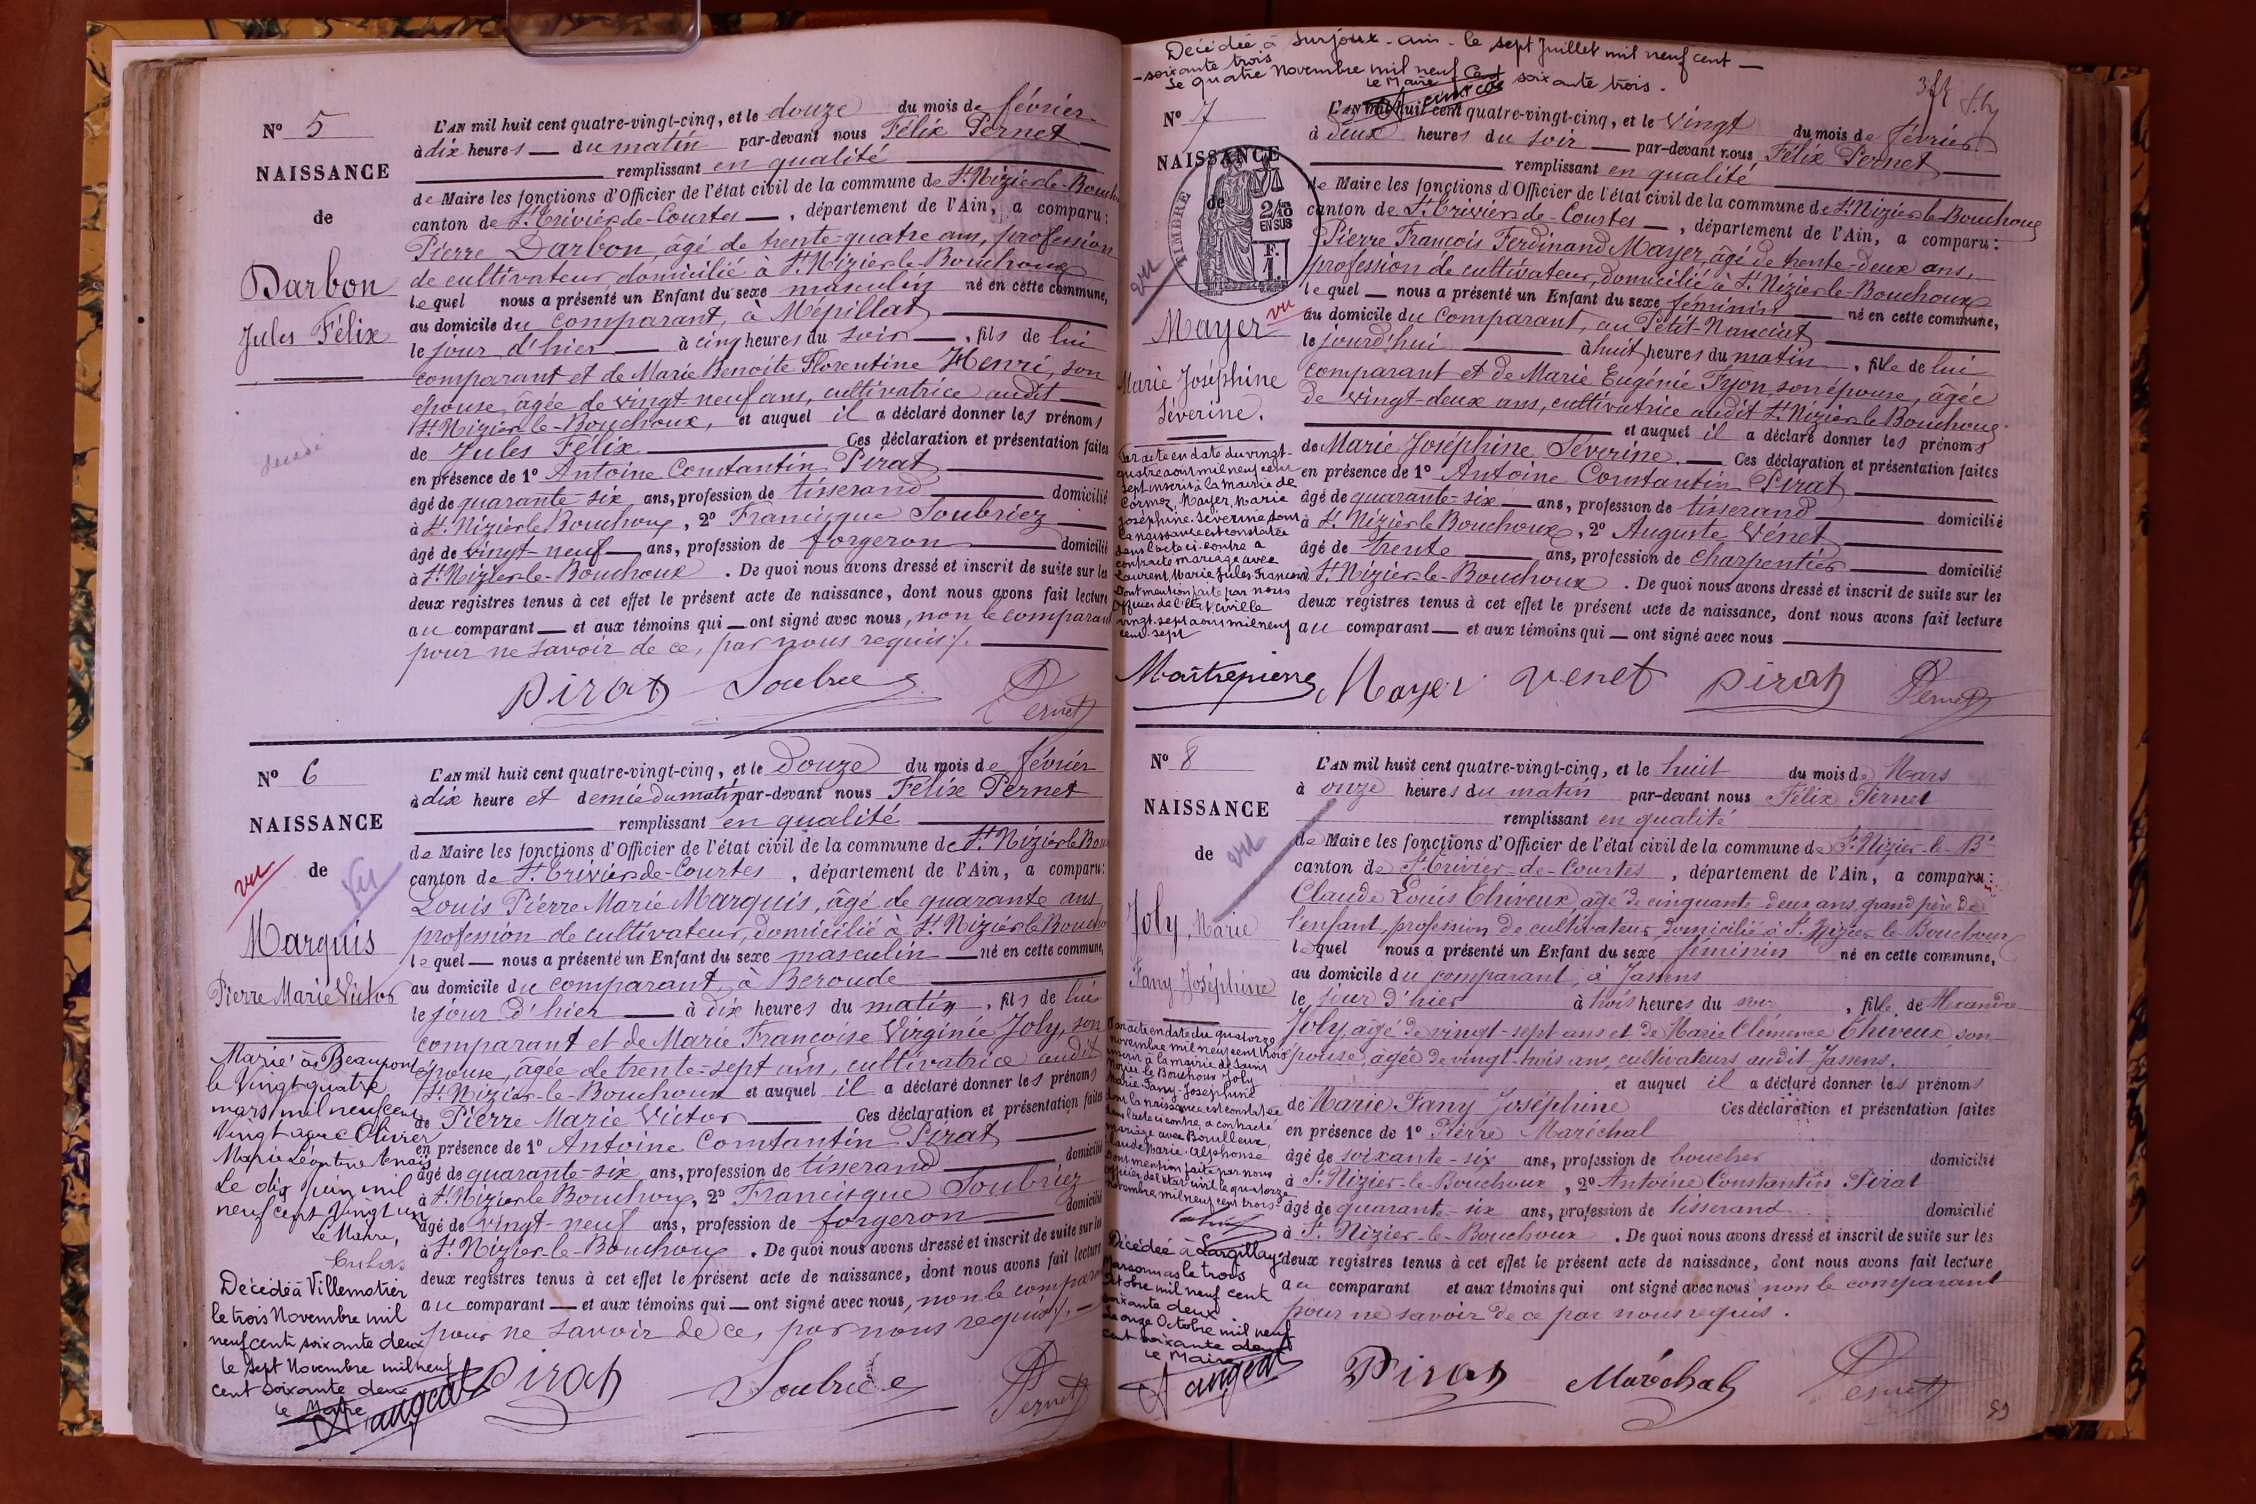 N° 5
NAISSANCE
de
Darbon
Jules Félix
L'AN mil huit cent quatre-vingt-cinq, et le douze du mois de février
à dix heures du matin par-devant nous Félix Pernet
remplissant en qualité
de Maire les fonctions d'Officier de l'état civil de la commune de St Nizier-le-Bouch
canton de St Trivier-de-Courtes, département de l'Ain, a comparu:
Pierre Darbon, âgé de trente-quatre ans, profession
de cultivateur, domicilié à St Nizier-le-Bouchoux
lequel nous a présenté un Enfant du sexe masculin né en cette commune,
au domicile du comparant, à Mépillat
le jour d'hier à cinq heures du soir, fils de lui
comparant et de Marie Benoite Florentine Henri, son
épouse, âgée de vingt-neuf ans, cultivatrice audit
St Nizier-le-Bouchoux, et auquel il a déclaré donner les prénoms
de Jules Félix Ces déclaration et présentation faites
en présence de 1° Antoine Constantin Pirat
âgé de quarante-six ans, profession de tisserand domicilié
à St Nizier-le-Bouchoux, 2° Francisque Soubriez
âgé de vingt-neuf ans, profession de forgeron domicilié
à St Nizier-le-Bouchoux. De quoi nous avons dressé et inscrit de suite sur les
deux registres tenus à cet effet le présent acte de naissance, dont nous avons fait lecture
au comparant et aux témoins qui ont signé avec nous, non le comparant
pour ne savoir de ce, par nous requis.
Pirat Soubriez Pernet
N° 6
NAISSANCE
de
vu
vu
Marquis
Pierre Marie Victor
Marié à Beaupont
le vingt-quatre
mars mil neuf cent
vingt avec Olivier
Marie Léontine Anaïs
Le dix juin mil
neuf cent vingt un
Le Maire,
Décédé à Villemotier
le trois Novembre mil
neuf cent soixante deux
le sept Novembre mil neuf
cent soixante deux
le Maire
L'AN mil huit cent quatre-vingt-cinq, et le douze du mois de février
à dix heure et demie du matin par-devant nous Félix Pernet
remplissant en qualité
de Maire les fonctions d'Officier de l'état civil de la commune de St Nizier-le-Bou
canton de St Trivier-de-Courtes, département de l'Ain, a comparu:
Louis Pierre Marie Marquis, âgé de quarante ans
profession de cultivateur, domicilié à St Nizier-le-Boucho
lequel nous a présenté un Enfant du sexe masculin né en cette commune,
au domicile du comparant, à Beroude
le jour d'hier à dix heures du matin, fils de lui
comparant et de Marie Françoise Virginie Joly, son
épouse, âgée de trente-sept ans, cultivatrice audit
St Nizier-le-Bouchoux et auquel il a déclaré donner les prénoms
de Pierre Marie Victor Ces déclaration et présentation faites
en présence de 1° Antoine Constantin Pirat
âgé de quarante-six ans, profession de tisserand domicilié
à St Nizier-le-Bouchoux, 2° Francisque Soubriez
âgé de vingt-neuf ans, profession de forgeron domicilié
à St Nizier-le-Bouchoux. De quoi nous avons dressé et inscrit de suite sur les
deux registres tenus à cet effet le présent acte de naissance, dont nous avons fait lecture
au comparant et aux témoins qui ont signé avec nous, non le comparant
pour ne savoir de ce, par nous requis.
Pirat Soubriez Pernet
Décédée à Surjoux - Ain - le sept Juillet mil neuf cent
soixante trois
Le quatre Novembre mil neuf cent soixante trois.
le Maire
N° 7
NAISSANCE
de
TIMBRE
2/10
EN SUS
F.
1.
vu
vu
Mayer
Marie Joséphine
Séverine.
Par acte en date du vingt-
quatre aout mil neuf cent
sept inscrit à la mairie de
Cormoz, Mayer, Marie
Joséphine Séverine, dont
la naissance est constatée
dans l'acte ci-contre a
contracté mariage avec
Laurent, Marie Jules Francois
Dont mention faite par nous
Officier de l'état civil le
vingt-sept aout mil neuf
cent-sept
L'AN mil huit cent quatre-vingt-cinq, et le vingt du mois de février
à deux heures du soir par-devant nous Félix Pernet
remplissant en qualité
de Maire les fonctions d'Officier de l'état civil de la commune de St Nizier-le-Bouchoux
canton de St Trivier-de-Courtes, département de l'Ain, a comparu:
Pierre François Ferdinand Mayer, âgé de trente-deux ans,
profession de cultivateur, domicilié à St Nizier-le-Bouchoux
lequel nous a présenté un Enfant du sexe féminin né en cette commune,
au domicile du comparant, au Petit-Nanciat
le jourd'hui à huit heures du matin, fille de lui
comparant et de Marie Eugénie Fyon, son épouse, âgée
de vingt-deux ans, cultivatrice audit St Nizier-le-Bouchoux
et auquel il a déclaré donner les prénoms
de Marie Joséphine Séverine. Ces déclaration et présentation faites
en présence de 1° Antoine Constantin Pirat
âgé de quarante-six ans, profession de tisserand domicilié
à St Nizier-le-Bouchoux, 2° Auguste Vénet
âgé de trente ans, profession de charpentier domicilié
à St Nizier-le-Bouchoux. De quoi nous avons dressé et inscrit de suite sur les
deux registres tenus à cet effet le présent acte de naissance, dont nous avons fait lecture
au comparant et aux témoins qui ont signé avec nous
Maitrepierre Mayer Venet Pirat Pernet
N° 8
NAISSANCE
de
vu
Joly, Marie
Fany Joséphine
Par acte en date du quatorze
novembre mil neuf cent trois
inscrit à la mairie de Saint
Nizier le Bouchoux Joly
Marie-Fany-Joséphine
dont la naissance est constatée
dans l'acte ci contre, a contracté
mariage avec Bouilleux,
Claude Marie-Alphonse
Dont mention faite par nous
officier de l'état civil le quatorze
novembre mil neuf cent trois
Décédée à
Marsonnas le trois
Octobre mil neuf cent
soixante deux
Le onze Octobre mil neuf
cent soixante deux
le Maire
L'AN mil huit cent quatre-vingt-cinq, et le huit du mois de Mars
à onze heures du matin par-devant nous Félix Pernet
remplissant en qualité
de Maire les fonctions d'Officier de l'état civil de la commune de St Nizier-le-Bx
canton de St Trivier-de-Courtes, département de l'Ain, a comparu:
Claude Louis Thiveux âgé de cinquante-deux ans, grand père de
l'enfant, profession de cultivateur, domicilié à St Nizier-le-Bouchoux
lequel nous a présenté un Enfant du sexe féminin né en cette commune,
au domicile du comparant, à Jassens
le jour d'hier à trois heures du soir, fille de Alexandre
Joly, âgé de vingt-sept ans et de Marie Clémence Thiveux son
épouse, âgée de vingt-trois ans, cultivateurs audit Jassens.
et auquel il a déclaré donner les prénoms
de Marie Fany Joséphine Ces déclaration et présentation faites
en présence de 1° Pierre Maréchal
âgé de soixante-six ans, profession de boucher domicilié
à St Nizier-le-Bouchoux, 2° Antoine Constantin Pirat
âgé de quarante-six ans, profession de tisserand domicilié
à St Nizier-le-Bouchoux. De quoi nous avons dressé et inscrit de suite sur les
deux registres tenus à cet effet le présent acte de naissance, dont nous avons fait lecture
au comparant et aux témoins qui ont signé avec nous non le comparant
pour ne savoir de ce par nous requis.
Pirat Maréchal Pernet